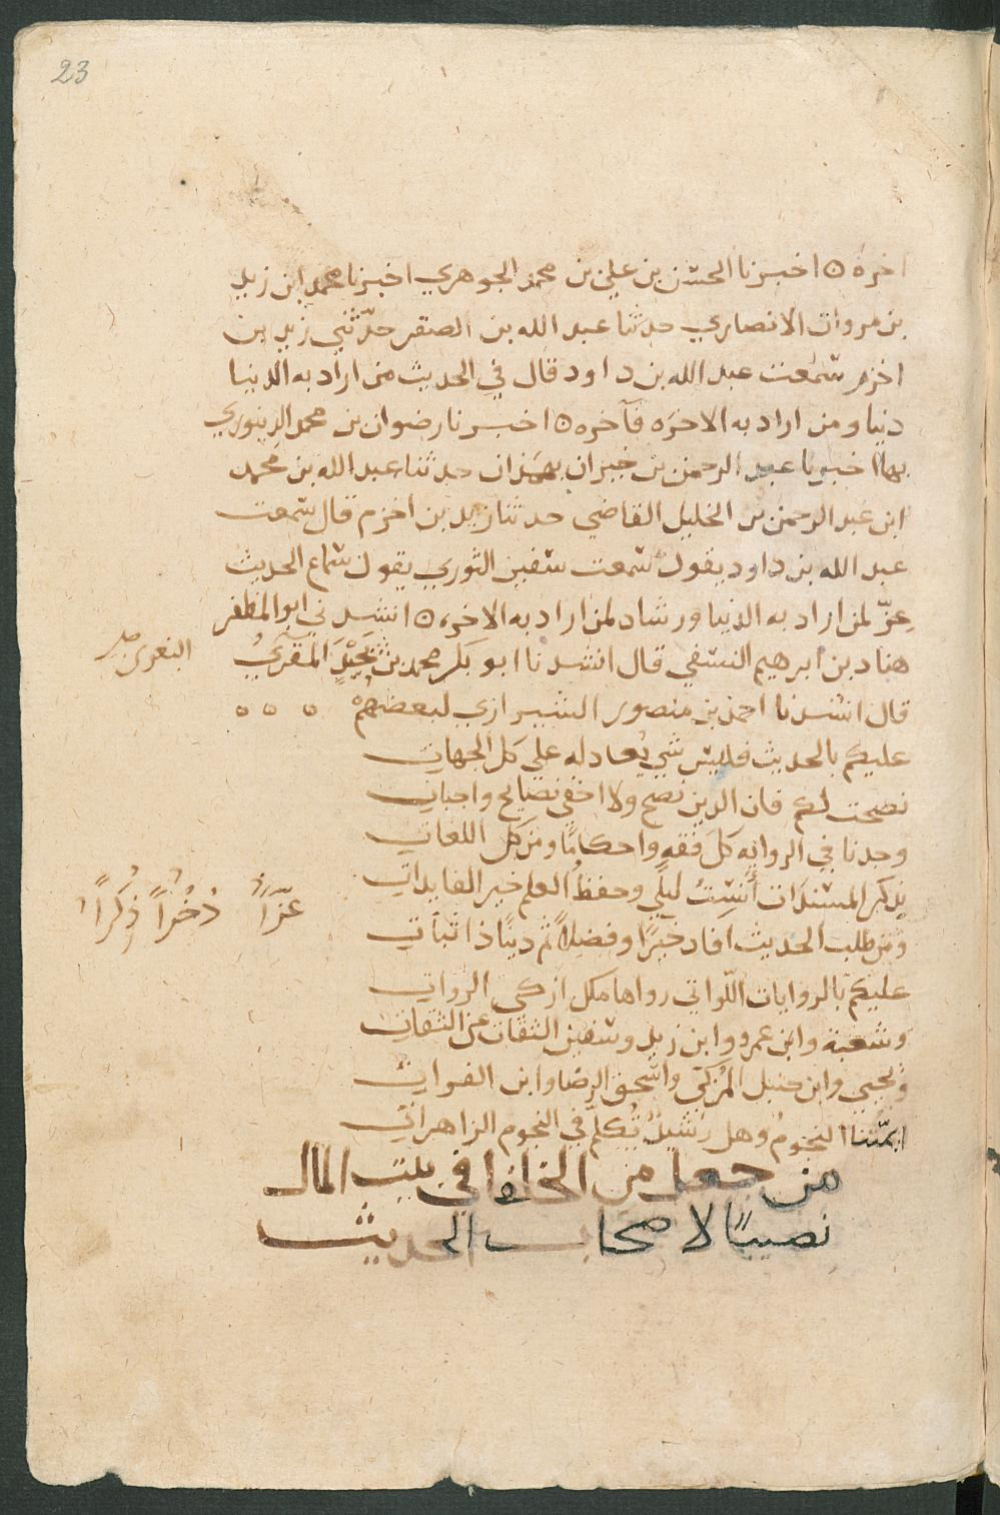 23
اخره ๐ اخبرنا الحسن بن علي بن محمد الجوهري اخبرنا محمد ابن زيد
بن مروان الانصاري حدثنا عبد الله بن الصقر حدّثني زيد بن
اخزم سمعت عبد الله بن داود قال في الحديث من اراد به الدنيا
دنيا ومن اراد به الاخرَه فآخره ๐ اخبرنا رضوان بن محمد الدينوري
بها اخبرنا عبد الرحمن بن خيران بهمَذان حدثنا عبد الله بن محمد
ابن عبد الرحمن بن الخليل القاضي حدثنا زيد بن اخزم قال سمعت
عبد الله بن داود يقول سمعت سفين الثوري يقول سماع الحديث
عِزّ لمن اراد به الدنيا ورشاد لمن اراد به الاخره ๐ انشدني ابو المظفر
هناد بن ابرهيم النسفي قال انشدنا ابو بكر محمد بن المقرئُ
قال انشدنا احمد بن منصور الشيرازي لبعضهمْ ๐ ๐ ๐
عليكم بالحديث فليس شي يُعادله على كل الجهات
نصحت لكم فان الدين نصح ولا اخفي نصايح واجبات
وجدنا في الروايه كلَ فقهٍ واحكامًا ومن كل اللغات
بذكر المسندَات أَنسِتُ ليلي وحفظُ العلم خير الفايدات
ومن طلب الحديث افاد خيرًا وفضلاً ثم دينًا ذا ثبات
عزّاً ذُخْراً ذِكْراً
عليكم بالروايات اللّواتي رواها مكل ازكى الرواتِ
وشعبة وابن عمرو وابن زيد وسفين الثقات عن الثقات
ويحيي وابن حنبل المُزكّى واسحق الرضا وابن الفرات
ايمّتنا النجومُ وهل رَشيدٌ تُكلّم في النجوم الزاهراتِ
من جعل من الخلفا في بيت المال
نصيبًا لاصحاب الحديث